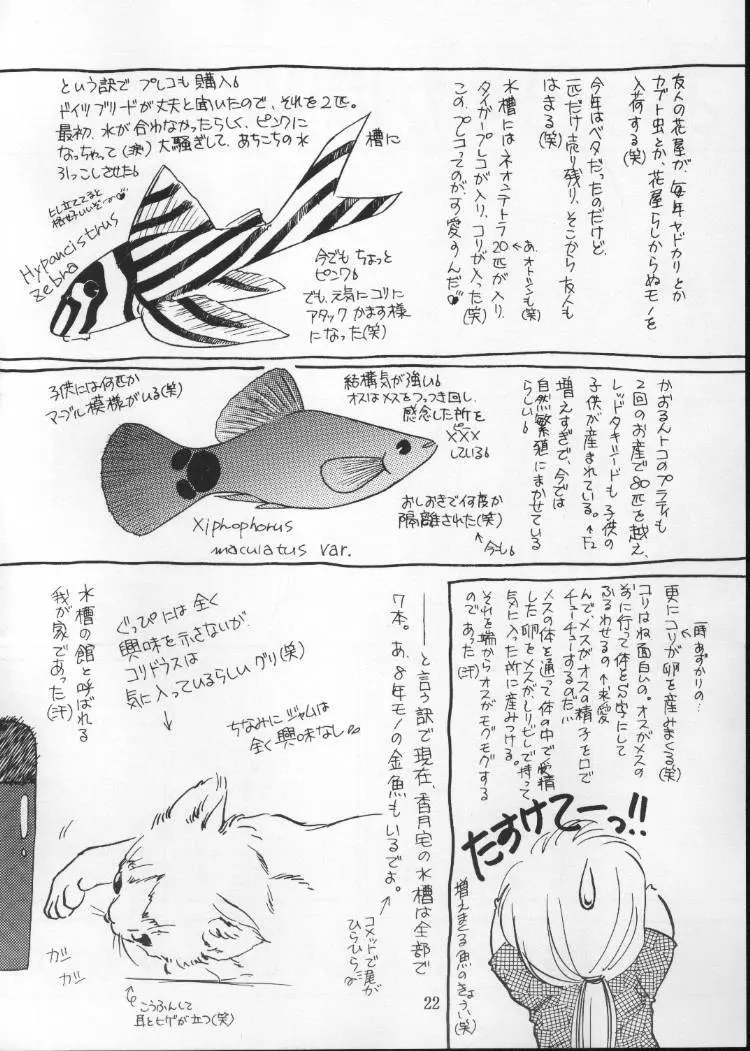 友人の花屋が、毎年ヤドカリとか
カブト虫とか、花屋らしからぬモノを
入荷する(笑)
今年はベタだったのだけど、
一匹だけ売り残り、そこから友人も
はまる(笑)
水槽にはネオンテトラ20匹が入り、
あ、オトシンも(笑)
タイガープレコが入り、コリが入った(笑)
この、プレコってのが、す愛すんだ
という訳で プレコも 購入。
ドイツブリードが丈夫と聞いたので、それを2匹。
最初、水が合わなかったらしく、ピンクに
なっちゃって(涙)大騒ぎして、あちこちの水槽に
引っこしさせた。
ヒレ立ててると
格好いいぞーっ
Hypancistrus
zebra
今でも ちょっと
ピンク。
でも、元気にコリに
アタック かます様
になった(笑)
かおるんトコのプラティも
2回のお産で80匹を越え、
レッドタキシードも子供の
子供が産まれている。←F2
増えすぎで、今では
自然繁殖にまかせている
らしい。
結構気が強い。
オスはメスをつっつき回し、
感念した所を
ピー
×××
している。
おしおきで何度か
隔離された(笑)
↑
今も。
子供には何匹か
マーブル模様がいる(笑)
Xiphophorus
maculatus var.
一時あずかりの…
更にコリが卵を産みまくる(笑)
コリはね面白いの。オスがメスの
前に行って体をS字にして
ふるわせるの ↑求愛
んで、メスがオスの精子を口で
チューチューするのだ!!
メスの体を通って体の中で受精
した卵をメスがしりビレで持って
気に入った所に産みつける。
それを端からオスがモグモグする
のであった(汗)
たすけてーっ!!
増えまくる魚のきょうい(笑)
――と言う訳で現在、香月宅の水槽は全部で
7本。あ、8年モノの金魚もいるでよ。
コメットで尾が
ひらひら
ぐっぴには全く
興味を示さないが、
コリドラスは
気に入っているらしいグリ(笑)
ちなみにジャムは
全く興味なし
水槽の館と呼ばれる
我が家であった(汗)
ガシ
ガシ
こうふんして
耳とヒゲが立つ(笑)
22